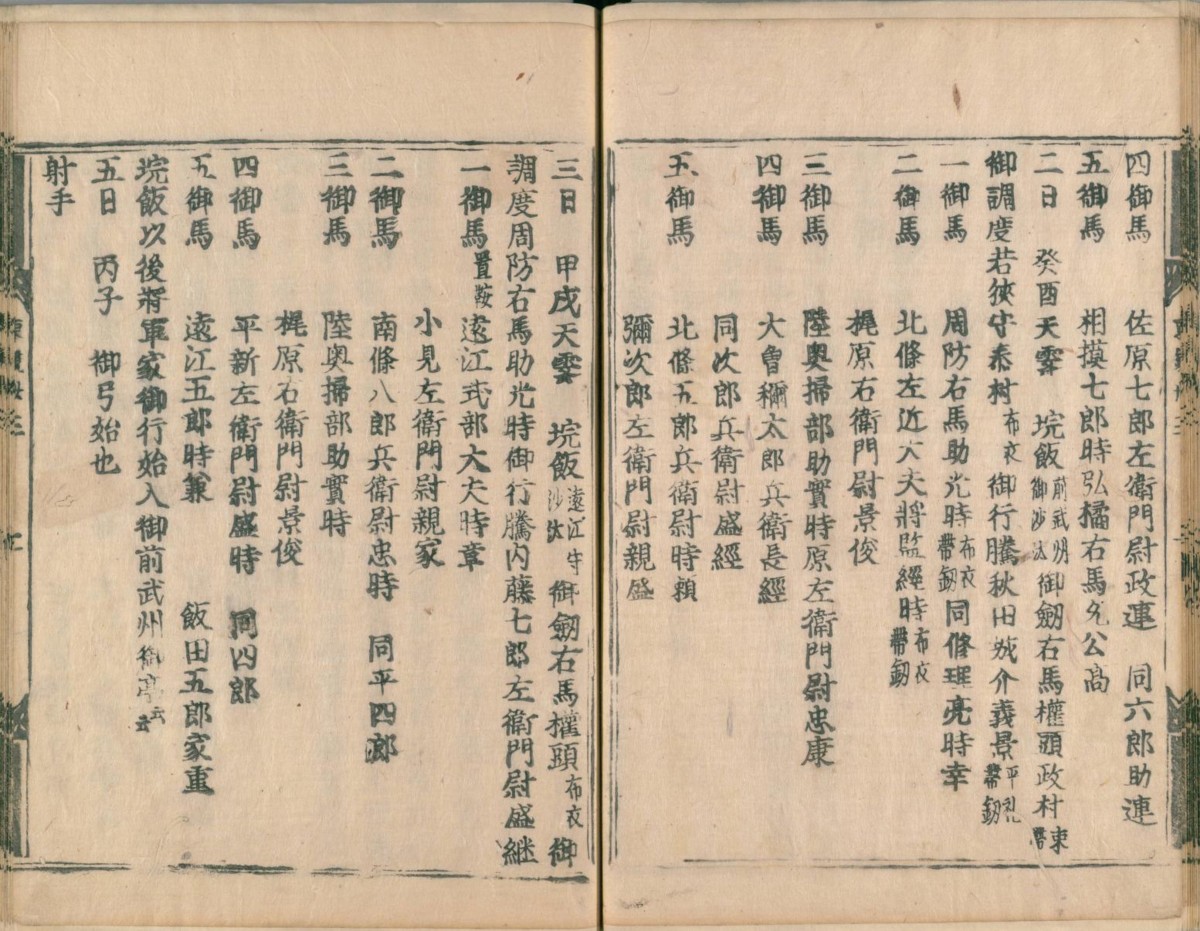 四御馬 佐原七郎左衛門尉政連 同六郎助連
五御馬 相摸七郎時弘 橘右馬允公高
二日 癸酉天霽 垸飯前武州御沙汰御劔右馬權頭政村束帶
御調度若狹守泰村布衣御行騰秋田城介義景平礼帶劔
一御馬 周防右馬助光時布衣帶劔同修理亮時幸
二御馬 北條左近大夫將監經時布衣帶劔
梶原右衛門尉景俊
三御馬 陸奥掃部助實時原左衛門尉忠康
四御馬 大曽禰太郎兵衛長經
同次郎兵衛尉盛經
五御馬 北條五郎兵衛尉時頼
彌次郎左衛門尉親盛
三日 甲戌天霽 垸飯遠江守沙汰御劔右馬權頭布衣御
調度周防右馬助光時御行騰内藤七郎左衛門尉盛継
一御馬置鞍遠江式部大夫時章
小見左衛門尉親家
二御馬 南條八郎兵衛尉忠時 同平四郎
三御馬 陸奥掃部助實時
梶原右衛門尉景俊
四御馬 平新左衛門尉盛時 同四郎
五御馬 遠江五郎時兼 飯田五郎家重
垸飯以後將軍家御行始入御前武州御亭云云
五日 丙子 御弓始也
射手